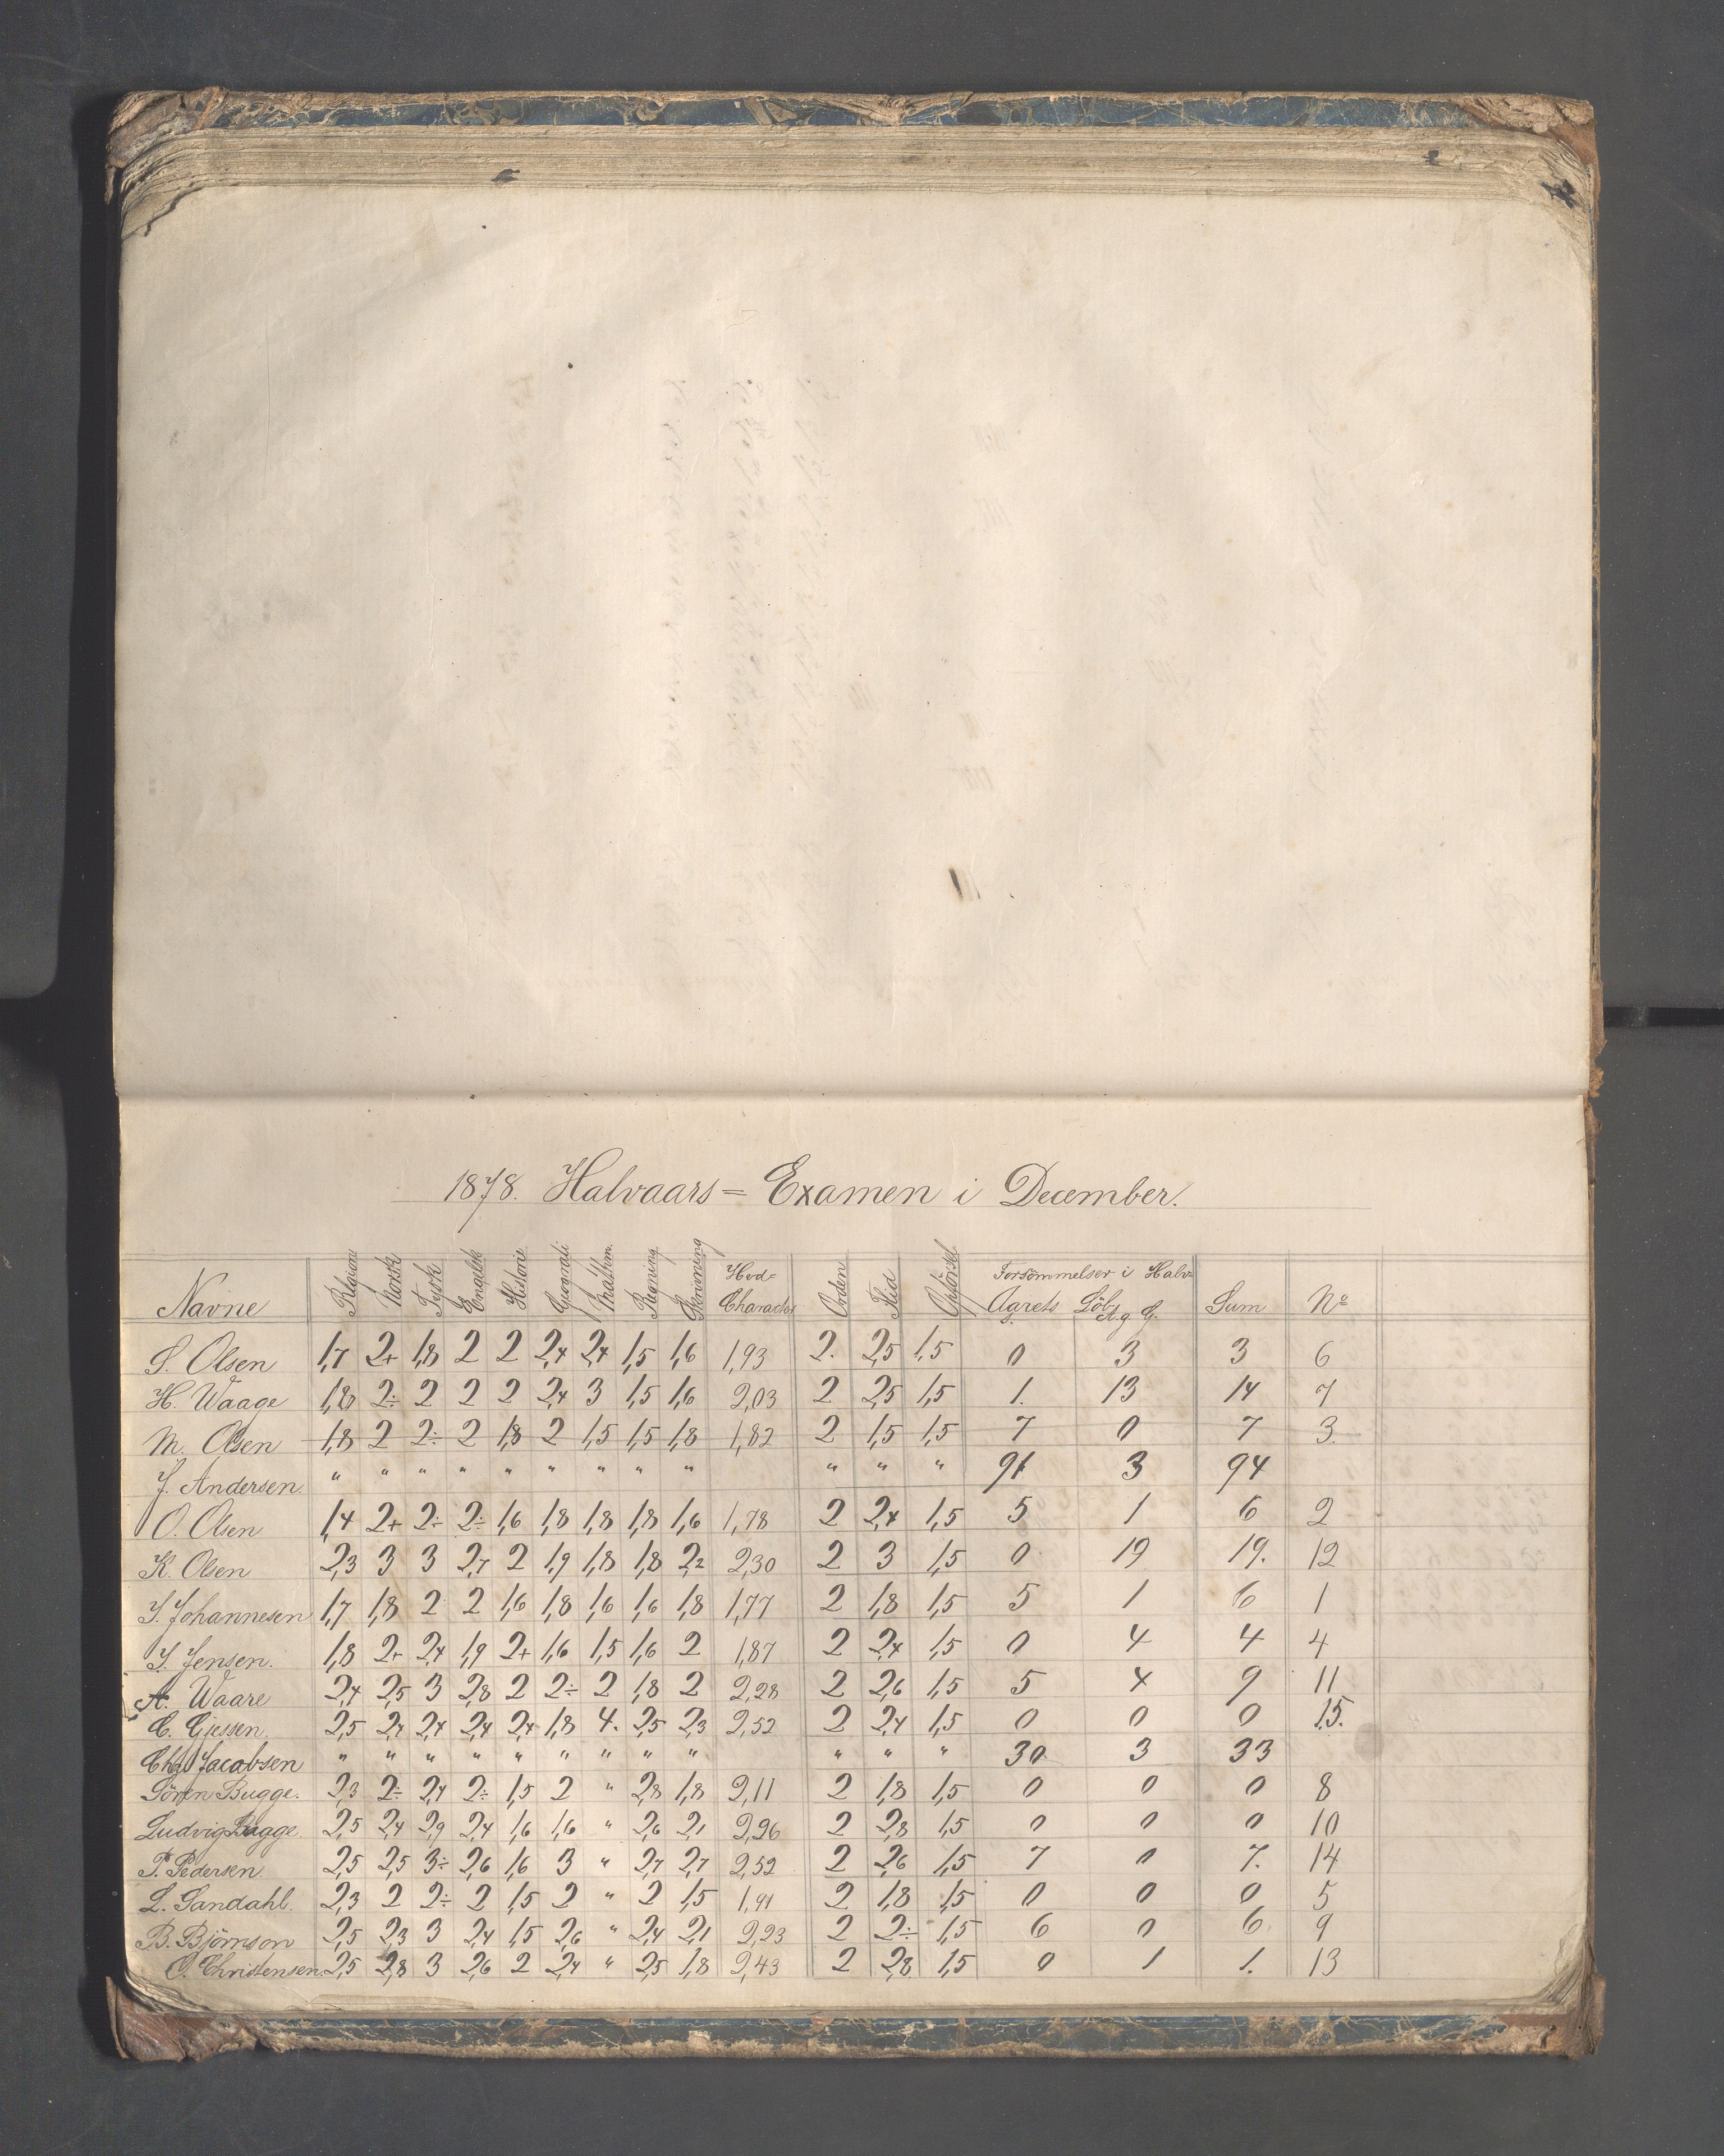 1878. Halvaars = Examen i December.
Navne Religion Norsk Tysk Engelsk Historie Geografi Mathm. Regning Skrivning Hvd= Character Orden Flid Opförsel Forsömmelser i Halv= Aarets Löb Sum No
S. Olsen 1,7 2+ 1,8 2 2 2,4 2,4 1,5 1,6 1,93 2. 2,5 1,5 0 3 3 6
H. Waage 1,8 2÷ 2 2 2 2,4 3 1,5 1,6 2,03 2 2,5 1,5 1. 13 14 7
M. Olsen 1,8 2 2÷ 2 1,8 2 1,5 1,5 1,8 1,82 2 1,5 1,5 7 0 7 3.
J. Andersen. " " " " " " " " " " " " 91 3 94
O. Olsen 1,4 2+ 2÷ 2÷ 1,6 1,8 1,8 1,8 1,6 1,78 2 2,4 1,5 5 1 6 2
K. Olsen 2,3 3 3 2,7 2 1,9 1,8 1,8 2,2 2,30 2 3 1,5 0 19 19. 12
I. Johannesen 1,7 1,8 2 2 1,6 1,8 1,6 1,6 1,8 1,77 2 1,8 1,5 5 1 6 1
I. Jensen. 1,8 2+ 2,4 1,9 2+ 1,6 1,5 1,6 2 1,87 2 2,4 1,5 0 4 4 4
A. Waare 2,4 2,5 3 2,8 2 2÷ 2 1,8 2 2,28 2 2,6 1,5 5 4 9 11
C. Gjessen. 2,5 2,4 2,4 2,4 2,4 1,8 4. 2,5 2,3 2,52 2 2,4 1,5 0 0 0 15.
Chr. Jacobsen " " " " " " " " " " " " 30 3 33
Sören Bugge. 2,3 2÷ 2,4 2÷ 1,5 2 " 2,8 1,8 2,11 2 1,8 1,5 0 0 0 8
Ludvig Bugge. 2,5 2,4 2,9 2,4 1,6 1,6 " 2,6 2,1 2,26 2 2,8 1,5 0 0 0 10
P. Pedersen. 2,5 2,5 3÷ 2,6 1,6 3 " 2,7 2,7 2,52 2 2,6 1,5 7 0 7. 14
L. Sandahl. 2,3 2 2÷ 2 1,5 2 " 2 1,5 1,91 2 1,8 1,5 0 0 0 5
B. Björnson 2,5 2,3 3 2,4 1,5 2,6 " 2,4 2,1 2,23 2 2÷ 1,5 6 0 6 9
O. Christensen. 2,5 2,8 3 2,6 2 2,4 " 2,5 1,8 2,43 2 2,8 1,5 0 1 1. 13